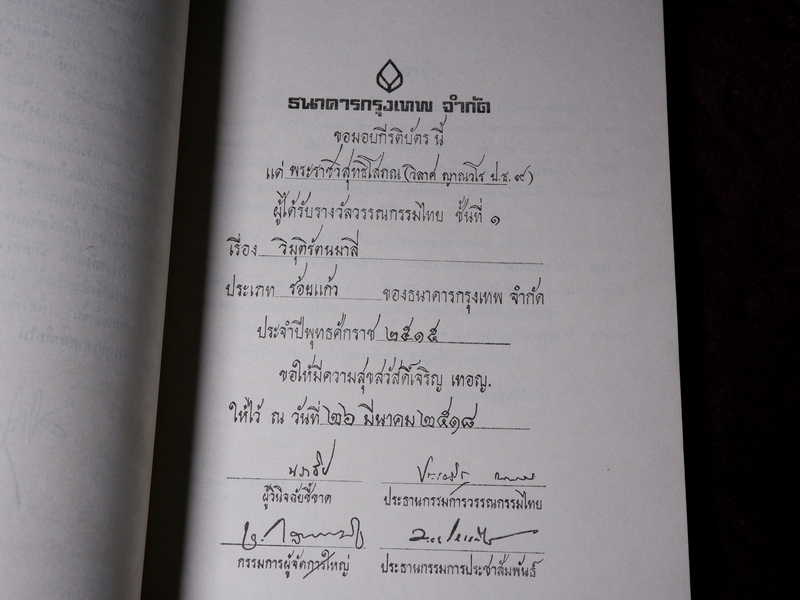 ธนาคารกรุงเทพ จำกัด
ขอมอบกีรติบัตร นี้
แด่ พระราชวิสุทธิโสภณ (วิลาศ ญาณวโร ป.ธ. ๙)
ผู้ได้รับรางวัลวรรณกรรมไทย ชั้นที่ ๑
เรื่อง วิมุติรัตนมาลี
ประเภท ร้อยแก้ว ของธนาคารกรุงเทพ จำกัด
ประจำปีพุทธศักราช ๒๕๑๕
ขอให้มีความสุขสวัสดิ์เจริญ เทอญ.
ให้ไว้ ณ วันที่ ๒๖ มีนาคม ๒๕๑๘
ผู้วินิจฉัยชี้ขาด ประธานกรรมการวรรณกรรมไทย
กรรมการผู้จัดการใหญ่ ประธานกรรมการประชาสัมพันธ์